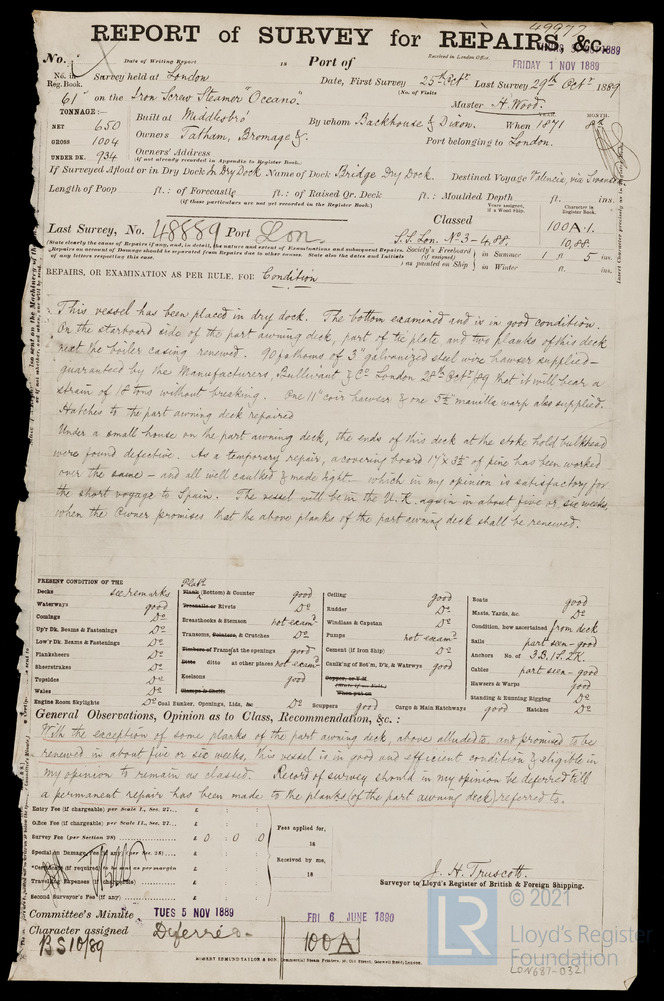 49977
REPORT of SURVEY for REPAIRS, &c.
No.
Date of Writing Report
18
Port of
Received in London Office.
FRIDAY 1 NOV 1889
No. in Reg. Book.
Survey held at London
Date, First Survey 25th Octr Last Survey 29th Octr 1889
(No. of Visits
61 on the Iron Screw Steamer "Oceano"
Master H. Wood.
TONNAGE:—
NET 650
GROSS 1004
UNDER DK. 934
Built at Middlesbro'
By whom Backhouse & Dixon. When 1871
MONTH.
Owners Tatham, Bromage &
Port belonging to London.
Owners' Address
(if not already recorded in Appendix to Register Book.
If Surveyed Afloat or in Dry Dock In Dry Dock Name of Dock Bridge Dry Dock. Destined Voyage Valencia, via Swansea
Length of Poop ft.: of Forecastle ft.: of Raised Qr. Deck ft.: Moulded Depth ft. ins.
(if those particulars are not yet recorded in the Register Book.)
Years assigned, if a Wood Ship.
Character in Register Book.
Classed
100A.1.
Last Survey, No. 48889 Port Lon.
S.S. Lon. No. 3 - 4.88.
10,88.
(State clearly the cause of Repairs if any, and, in detail, the nature and extent of Examinations and subsequent Repairs.
Repairs on account of Damage should be separated from Repairs due to other causes. State also the dates and Initials
of any letters respecting this case.
Society's Freeboard (if assigned) as painted on Ship
in Summer 1 ft 5 ins.
in Winter ft. ins.
REPAIRS, OR EXAMINATION AS PER RULE, FOR Condition
This vessel has been placed in dry dock. The bottom examined and is in good condition.
On the starboard side of the part awning deck, part of tie plate, and two planks of this deck
next the boiler casing renewed. 90 fathoms of 3" galvanized steel wire hawser supplied—
guaranteed by the Manufacturers, Bullivant & Co London 28th Octr /89 that it will bear a
strain of 18 tons without breaking. One 11" coir hawser & one 5½" manilla warp also supplied.
Hatches to the part awning deck repaired
Under a small house on the part awning deck, the ends of this deck at the stoke hold bulkhead
were found defective. As a temporary repair, a covering board 17 x 3½ of pine has been worked
over the same — and all well caulked & made tight — which in my opinion is satisfactory for
the short voyage to Spain. The vessel will be in the U.K. again in about five or six weeks,
when the Owner promises that the above planks of the part awning deck shall be renewed.
PRESENT CONDITION OF THE
Decks see remarks
Waterways good
Comings Do
Up'r Dk. Beams & Fastenings Do
Low'r Dk. Beams & Fastenings Do
Planksheers Do
Sheerstrakes Do
Topsides Do
Wales Do
Engine Room Skylights Do
Plate
Plank (Bottom) & Counter good
Treenails or Rivets Do
Breasthooks & Stemson not examd
Transoms, Pointers, & Crutches Do
Timbers of Frame at the openings good
Ditto ditto at other places not examd
Keelsons good
Clamps & Shelfs
Coal Bunker, Openings, Lids, &c. Do
Ceiling good
Rudder Do
Windlass & Capstan Do
Pumps not examd
Cement (if Iron Ship) Do
Caulk'g of Bot'm, D'k, & Watrwys good
Copper, or Y.M.
When put on
Scuppers good
Cargo & Main Hatchways good
Boats good
Masts, Yards, &c. Do
Condition, how ascertained from deck
Sails part seen - good
Anchors No. of 3B.1S.2K.
Cables part seen - good
Hawsers & Warps good
Standing & Running Rigging Do
Hatches Do
General Observations, Opinion as to Class, Recommendation, &c. :
With the exception of some planks of the part awning deck, above alluded to, and promised to be
renewed in about five or six weeks, this vessel is in good and efficient condition & eligible in
my opinion to remain as classed. Record of survey should in my opinion be deferred till
a permanent repair has been made to the planks (of the part awning deck) referred to.
Entry Fee (if chargeable) per Scale I., Sec. 27... £
Office Fee (if chargeable) per Scale II., Sec. 27... £
Survey Fee (per Section 28) £ 0 : 0 : 0
Second Surveyor's Fee (if any) £
Fees applied for,
18
Received by me,
18
J. H. Truscott.
Surveyor to Lloyd's Register of British & Foreign Shipping.
Committee's Minute TUES 5 NOV 1889
FRI 6 JUNE 1890
Character assigned Deferred
100A1
BS10/89
ROBERT EDMUND TAYLOR & SON,
© 2021
LR
Lloyd's Register
Foundation
LON687-0321